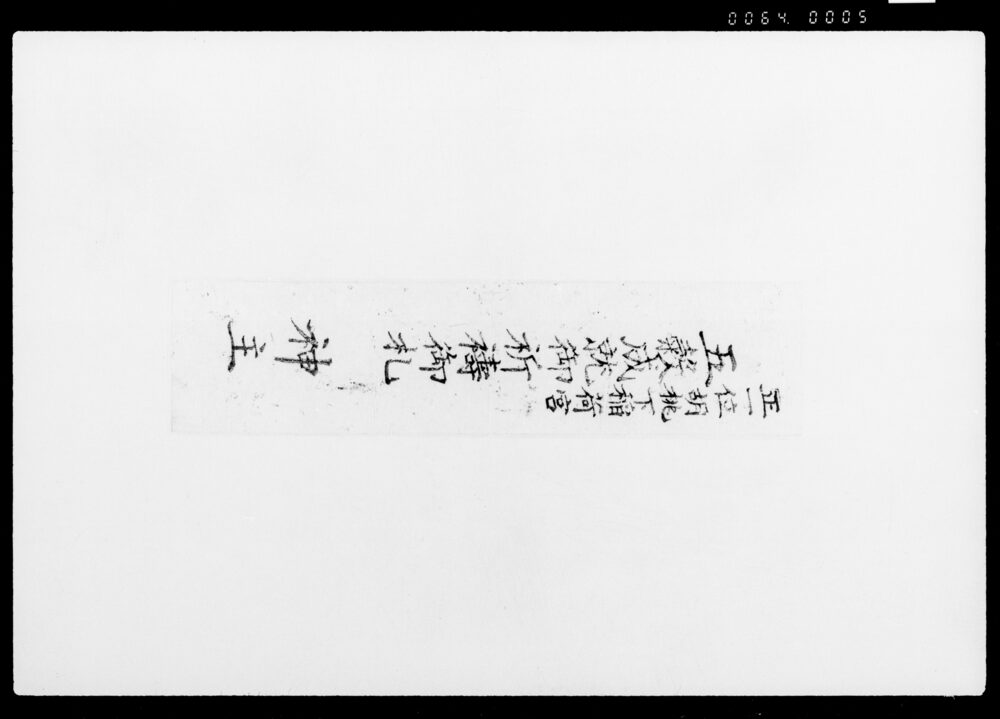 0064. 0005
正一位胡桃下稲荷宮
五穀成就御祈禱御札
神主